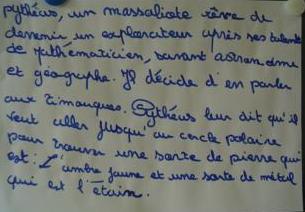 pythéus, un massaliote rêve de
devenir un explorateur après ses talents
de mathématicien, savant astronome
et géographe. Il décide d'en parler
aux Timouques. Pythéus leur dit qu'il
veut aller jusqu'au cercle polaire
pour trouver une sorte de pierre qui
est : l'ambre jaune et une sorte de métal
qui est l'étain.